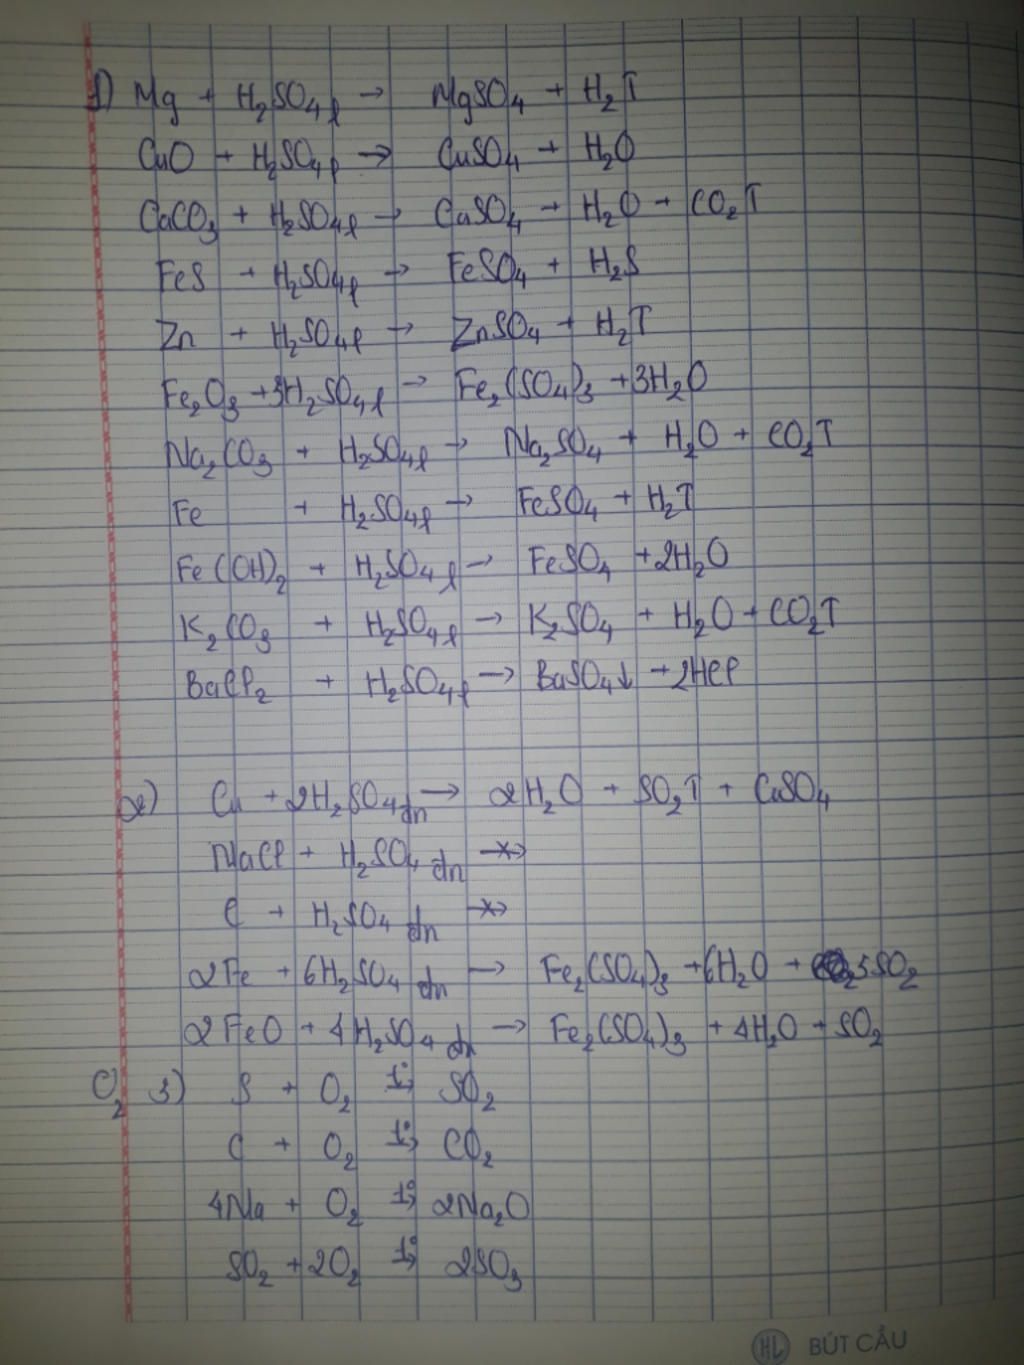 1) Mg + H₂SO₄ l → MgSO₄ + H₂↑
CuO + H₂SO₄ l → CuSO₄ + H₂O
CaCO₃ + H₂SO₄ l → CaSO₄ + H₂O + CO₂↑
FeS + H₂SO₄ l → FeSO₄ + H₂S
Zn + H₂SO₄ l → ZnSO₄ + H₂↑
Fe₂O₃ + 3H₂SO₄ l → Fe₂(SO₄)₃ + 3H₂O
Na₂CO₃ + H₂SO₄ l → Na₂SO₄ + H₂O + CO₂↑
Fe + H₂SO₄ l → FeSO₄ + H₂↑
Fe(OH)₂ + H₂SO₄ l → FeSO₄ + 2H₂O
K₂CO₃ + H₂SO₄ l → K₂SO₄ + H₂O + CO₂↑
BaCl₂ + H₂SO₄ l → BaSO₄↓ + 2HCl
2) Cu + 2H₂SO₄ đn → 2H₂O + SO₂↑ + CuSO₄
NaCl + H₂SO₄ đn -x->
C + H₂SO₄ đn -x->
2Fe + 6H₂SO₄ đn → Fe₂(SO₄)₃ + 6H₂O + 5SO₂
2FeO + 4H₂SO₄ đn → Fe₂(SO₄)₃ + 4H₂O + SO₂
O₂ 3) S + O₂ t°→ SO₂
C + O₂ t°→ CO₂
4Na + O₂ t°→ 2Na₂O
SO₂ + 2O₂ t°→ 2SO₃
HL BÚT CẦU